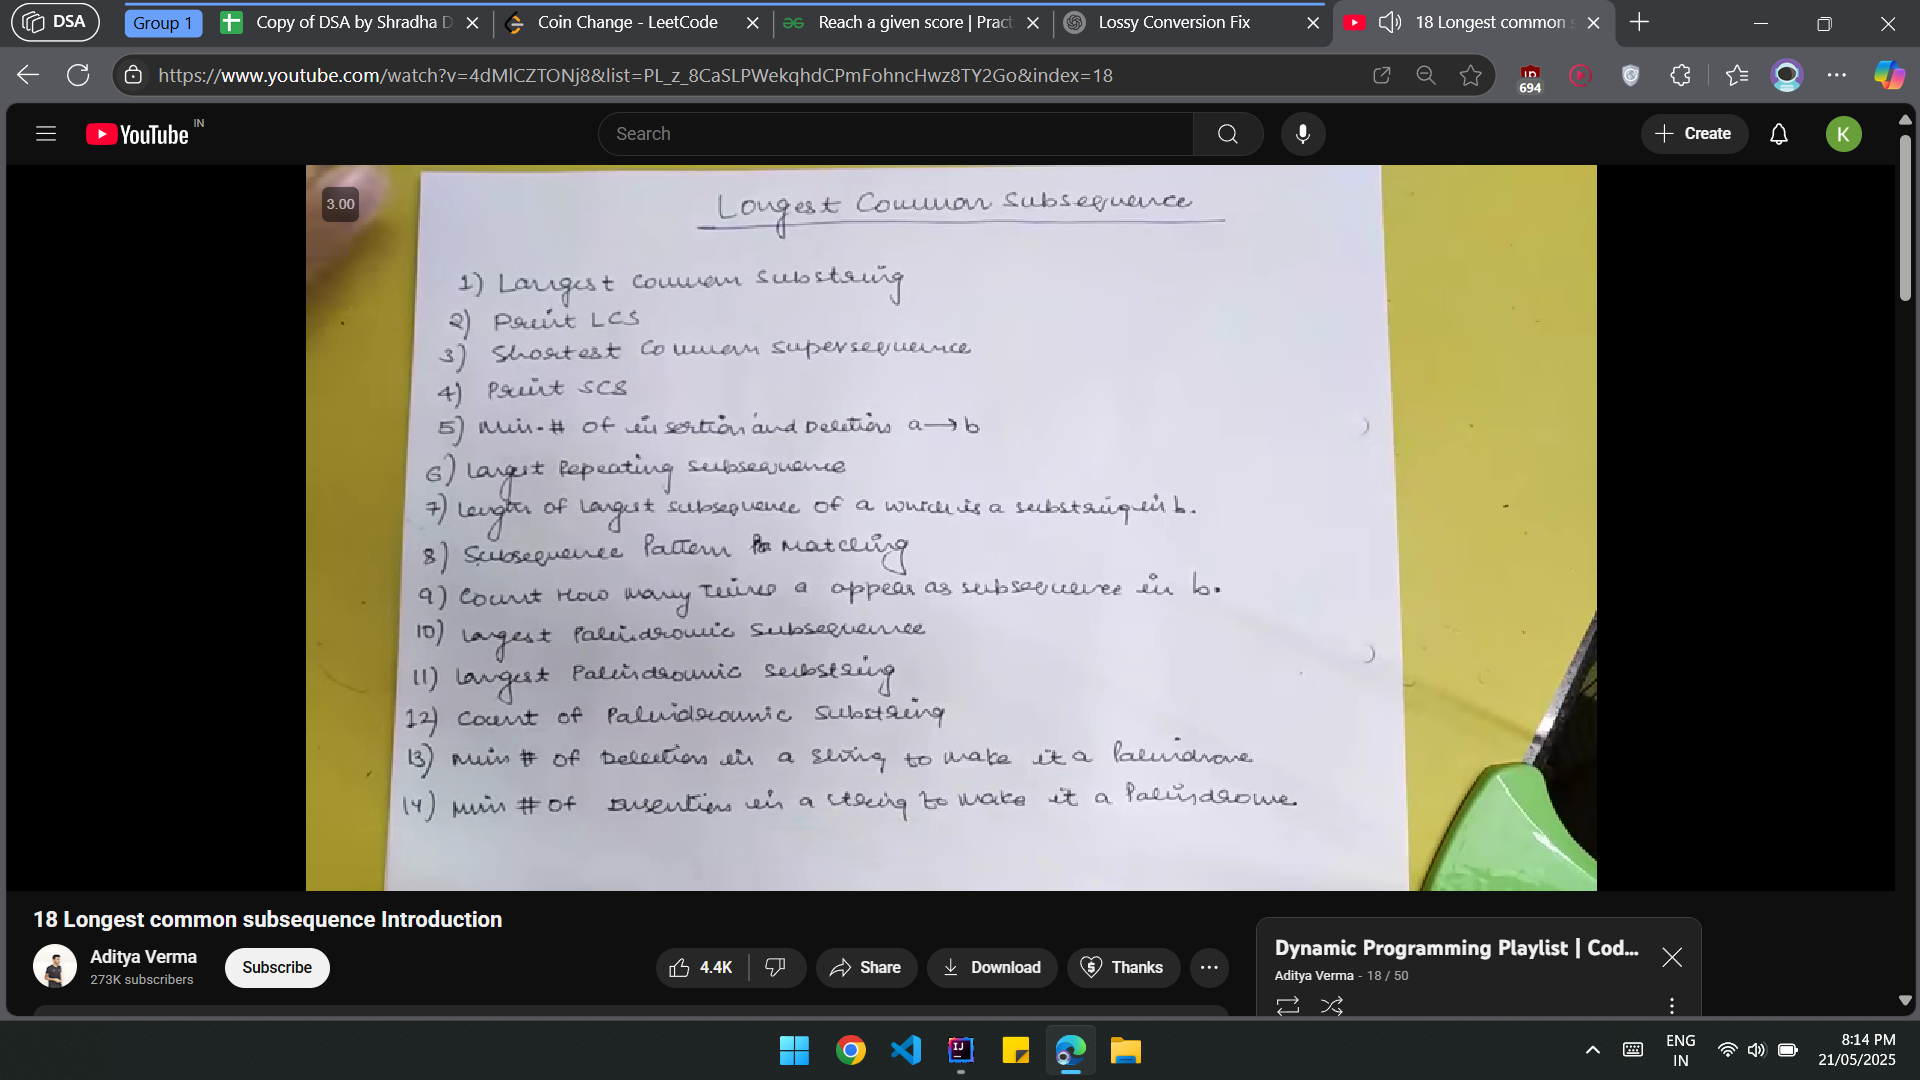 DSA
Group 1
Copy of DSA by Shradha D
Coin Change - LeetCode
Reach a given score | Pract
Lossy Conversion Fix
18 Longest common s
https://www.youtube.com/watch?v=4dMlCZTONj8&list=PL_z_8CaSLPWekqhdCPmFohncHwz8TY2Go&index=18
694
YouTube IN
Search
Create
K
3.00
Longest Common Subsequence
1) Largest Common Substring
2) Print LCS
3) Shortest Common Supersequence
4) Print SCS
5) Min # of insertion and Deletion a→b
6) Largest Repeating Subsequence
7) Length of largest subsequence of a which is a substring in b.
8) Subsequence Pattern Matching
9) Count How many Times a appear as subsequence in b.
10) Largest Palindromic Subsequence
11) Largest Palindromic Substring
12) Count of Palindromic Substring
13) Min # of Deletion in a string to make it a Palindrome
14) Min # of Insertion in a string to make it a Palindrome.
18 Longest common subsequence Introduction
Aditya Verma
273K subscribers
Subscribe
4.4K
Share
Download
Thanks
Dynamic Programming Playlist | Cod...
Aditya Verma - 18 / 50
ENG
IN
8:14 PM
21/05/2025